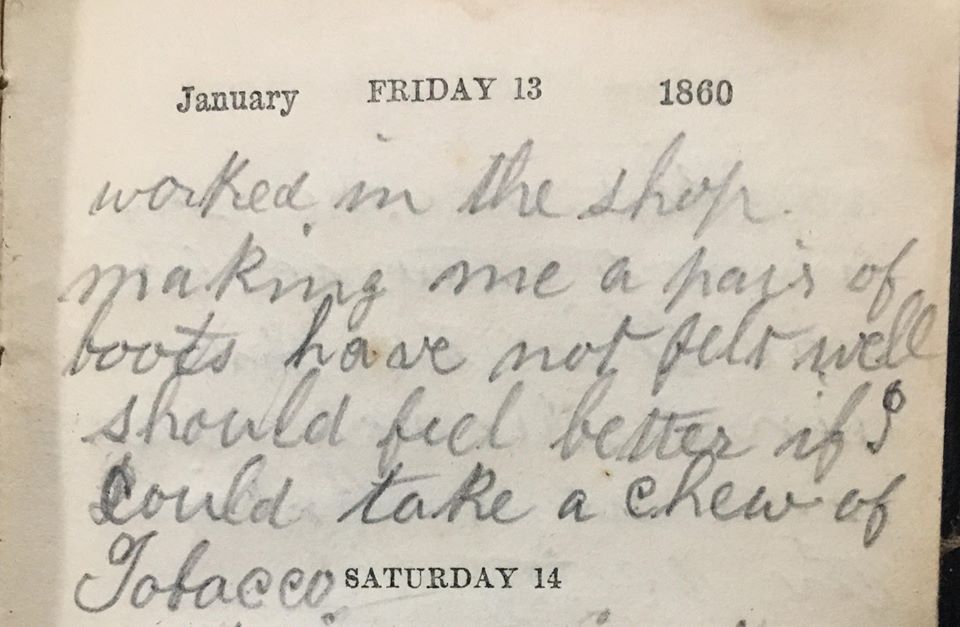 January FRIDAY 13 1860
worked in the shop.
making me a pair of
boots have not felt well
should feel better if I
Could take a chew of
Tobacco
SATURDAY 14